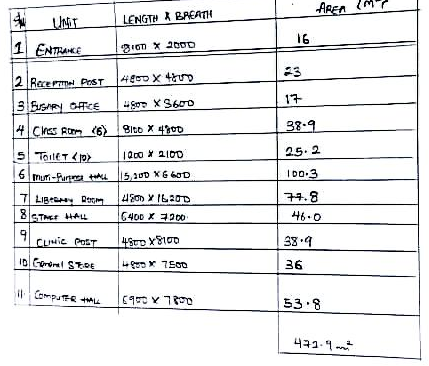 S/N UNIT LENGTH X BREATH AREA (m²)
1 ENTRANCE 8100 X 2000 16
2 RECEPTION POST 4800 X 4800 23
3 BUSARY OFFICE 4800 X 3600 17
4 CLASS ROOM (6) 8100 X 4800 38.9
5 TOILET (10) 1200 X 2100 25.2
6 MULTI-PURPOSE HALL 15,200 X 6600 100.3
7 LIBERARY ROOM 4800 X 16,200 77.8
8 STAFF HALL 6400 X 7200 46.0
9 CLINIC POST 4800 X 8100 38.9
10 General STORE 4800 X 7500 36
11. COMPUTER HALL 6900 X 7800 53.8
472.9 m²